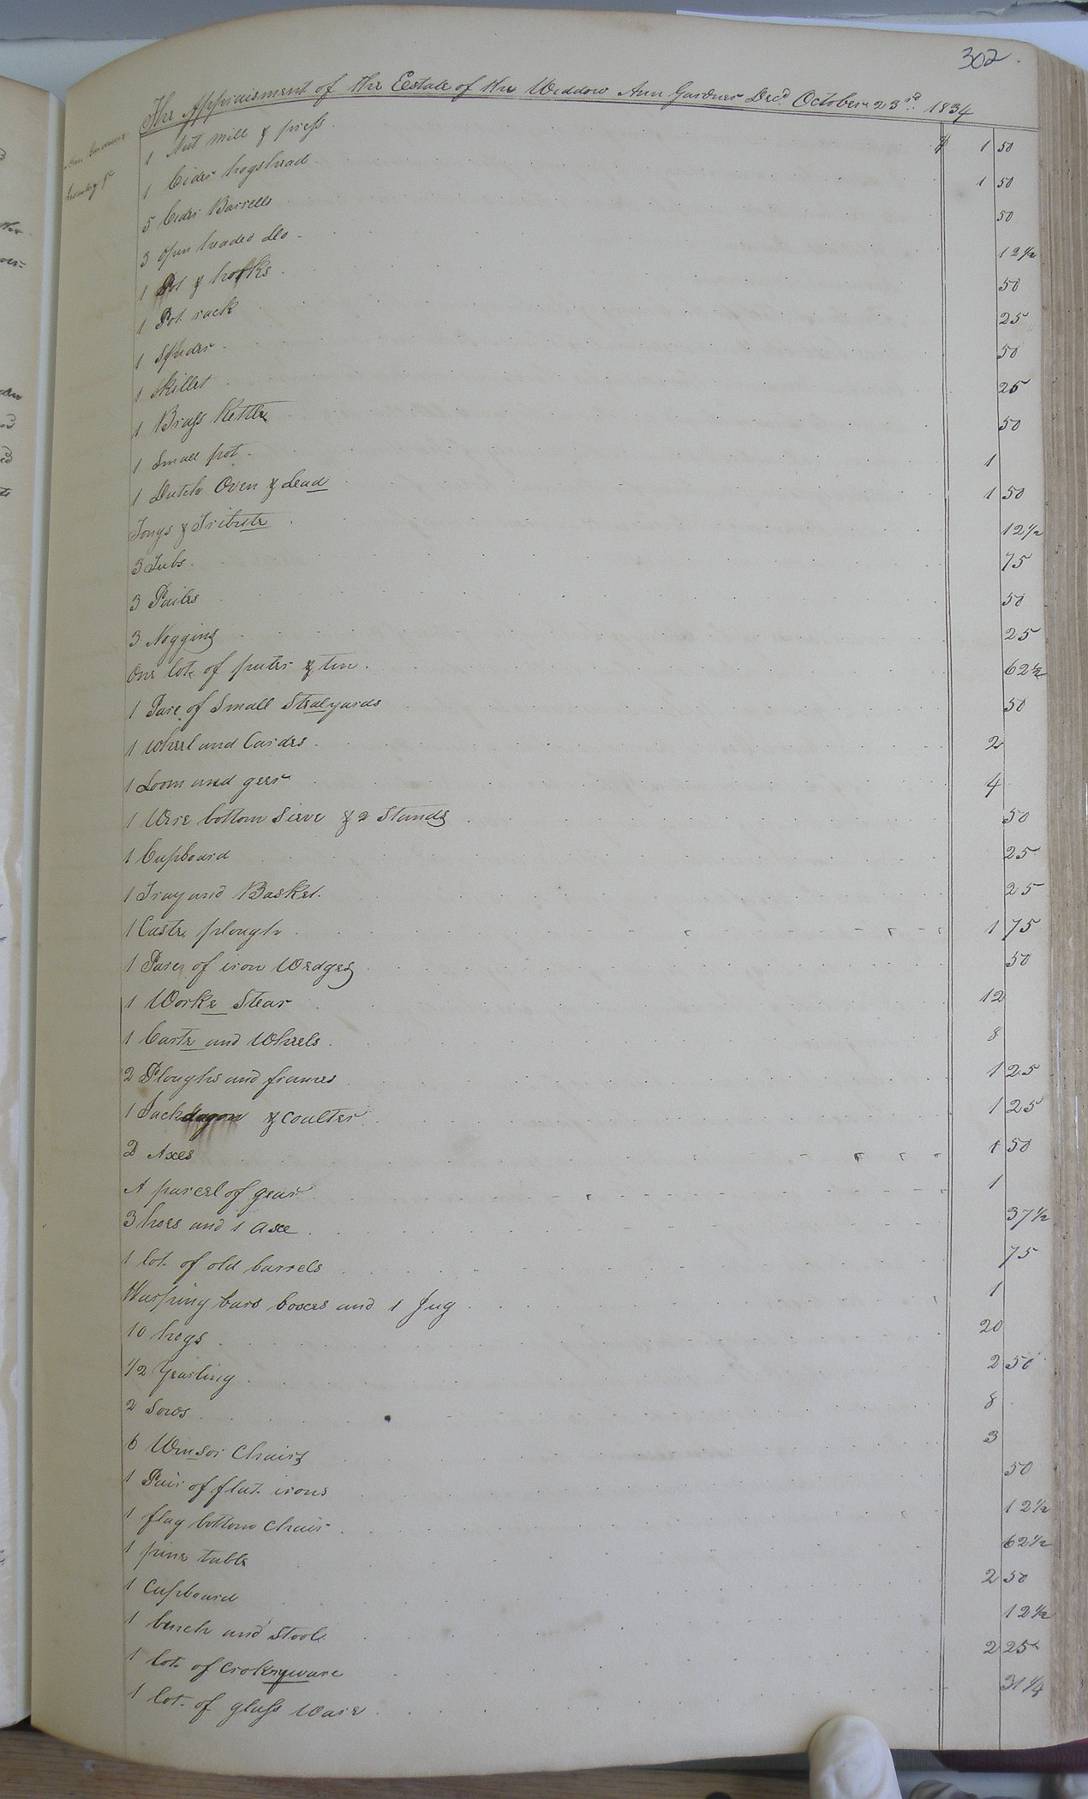 302
The Appraisment of the Estate of the Weddow Ann Gardner Decd October 23rd 1834
1 Nut mill & press $ 1 50
1 Cider hogshead 1 50
5 Cider Barrells 50
3 open headed do 12 1/2
1 Pot & hooks 50
1 Pot rack 25
1 Spider 50
1 Skillet 25
1 Brass Kettle 50
1 Small pot 1
1 Dutch Oven & Lead 1 50
Tongs & Tribute 12 1/2
3 Tubs 75
3 Pails 50
3 Noggins 25
One lote of puter & tin 62 1/2
1 Pare of Small Stealyards 50
1 Wheel and Cardes 2
1 Loom and geer 4
1 Wire bottom Sieve & 2 Stands 50
1 Cupboard 25
1 Tray and Basket 25
1 Caste plough 1 75
1 Pare of iron Wedges 50
1 Worke Stear 12
1 Carte and Wheels 8
2 Ploughs and frames 1 25
1 Jack & Coulter 1 25
2 Axes 1 50
A parcel of gear 1
3 hoes and 1 axe 37 1/2
1 lot of old barrels 75
Warping bars boxes and 1 Jug 1
10 hogs 20
1/2 Yearling 2 50
2 Sows 8
6 Winsor Chairs 3
1 Pair of flat irons 50
1 flag bottom Chair 12 1/2
1 pine table 62 1/2
1 Cupboard 2 50
1 bench and Stool 12 1/2
1 lot of Crokryware 2 25
1 lot of glass Ware 31 1/4